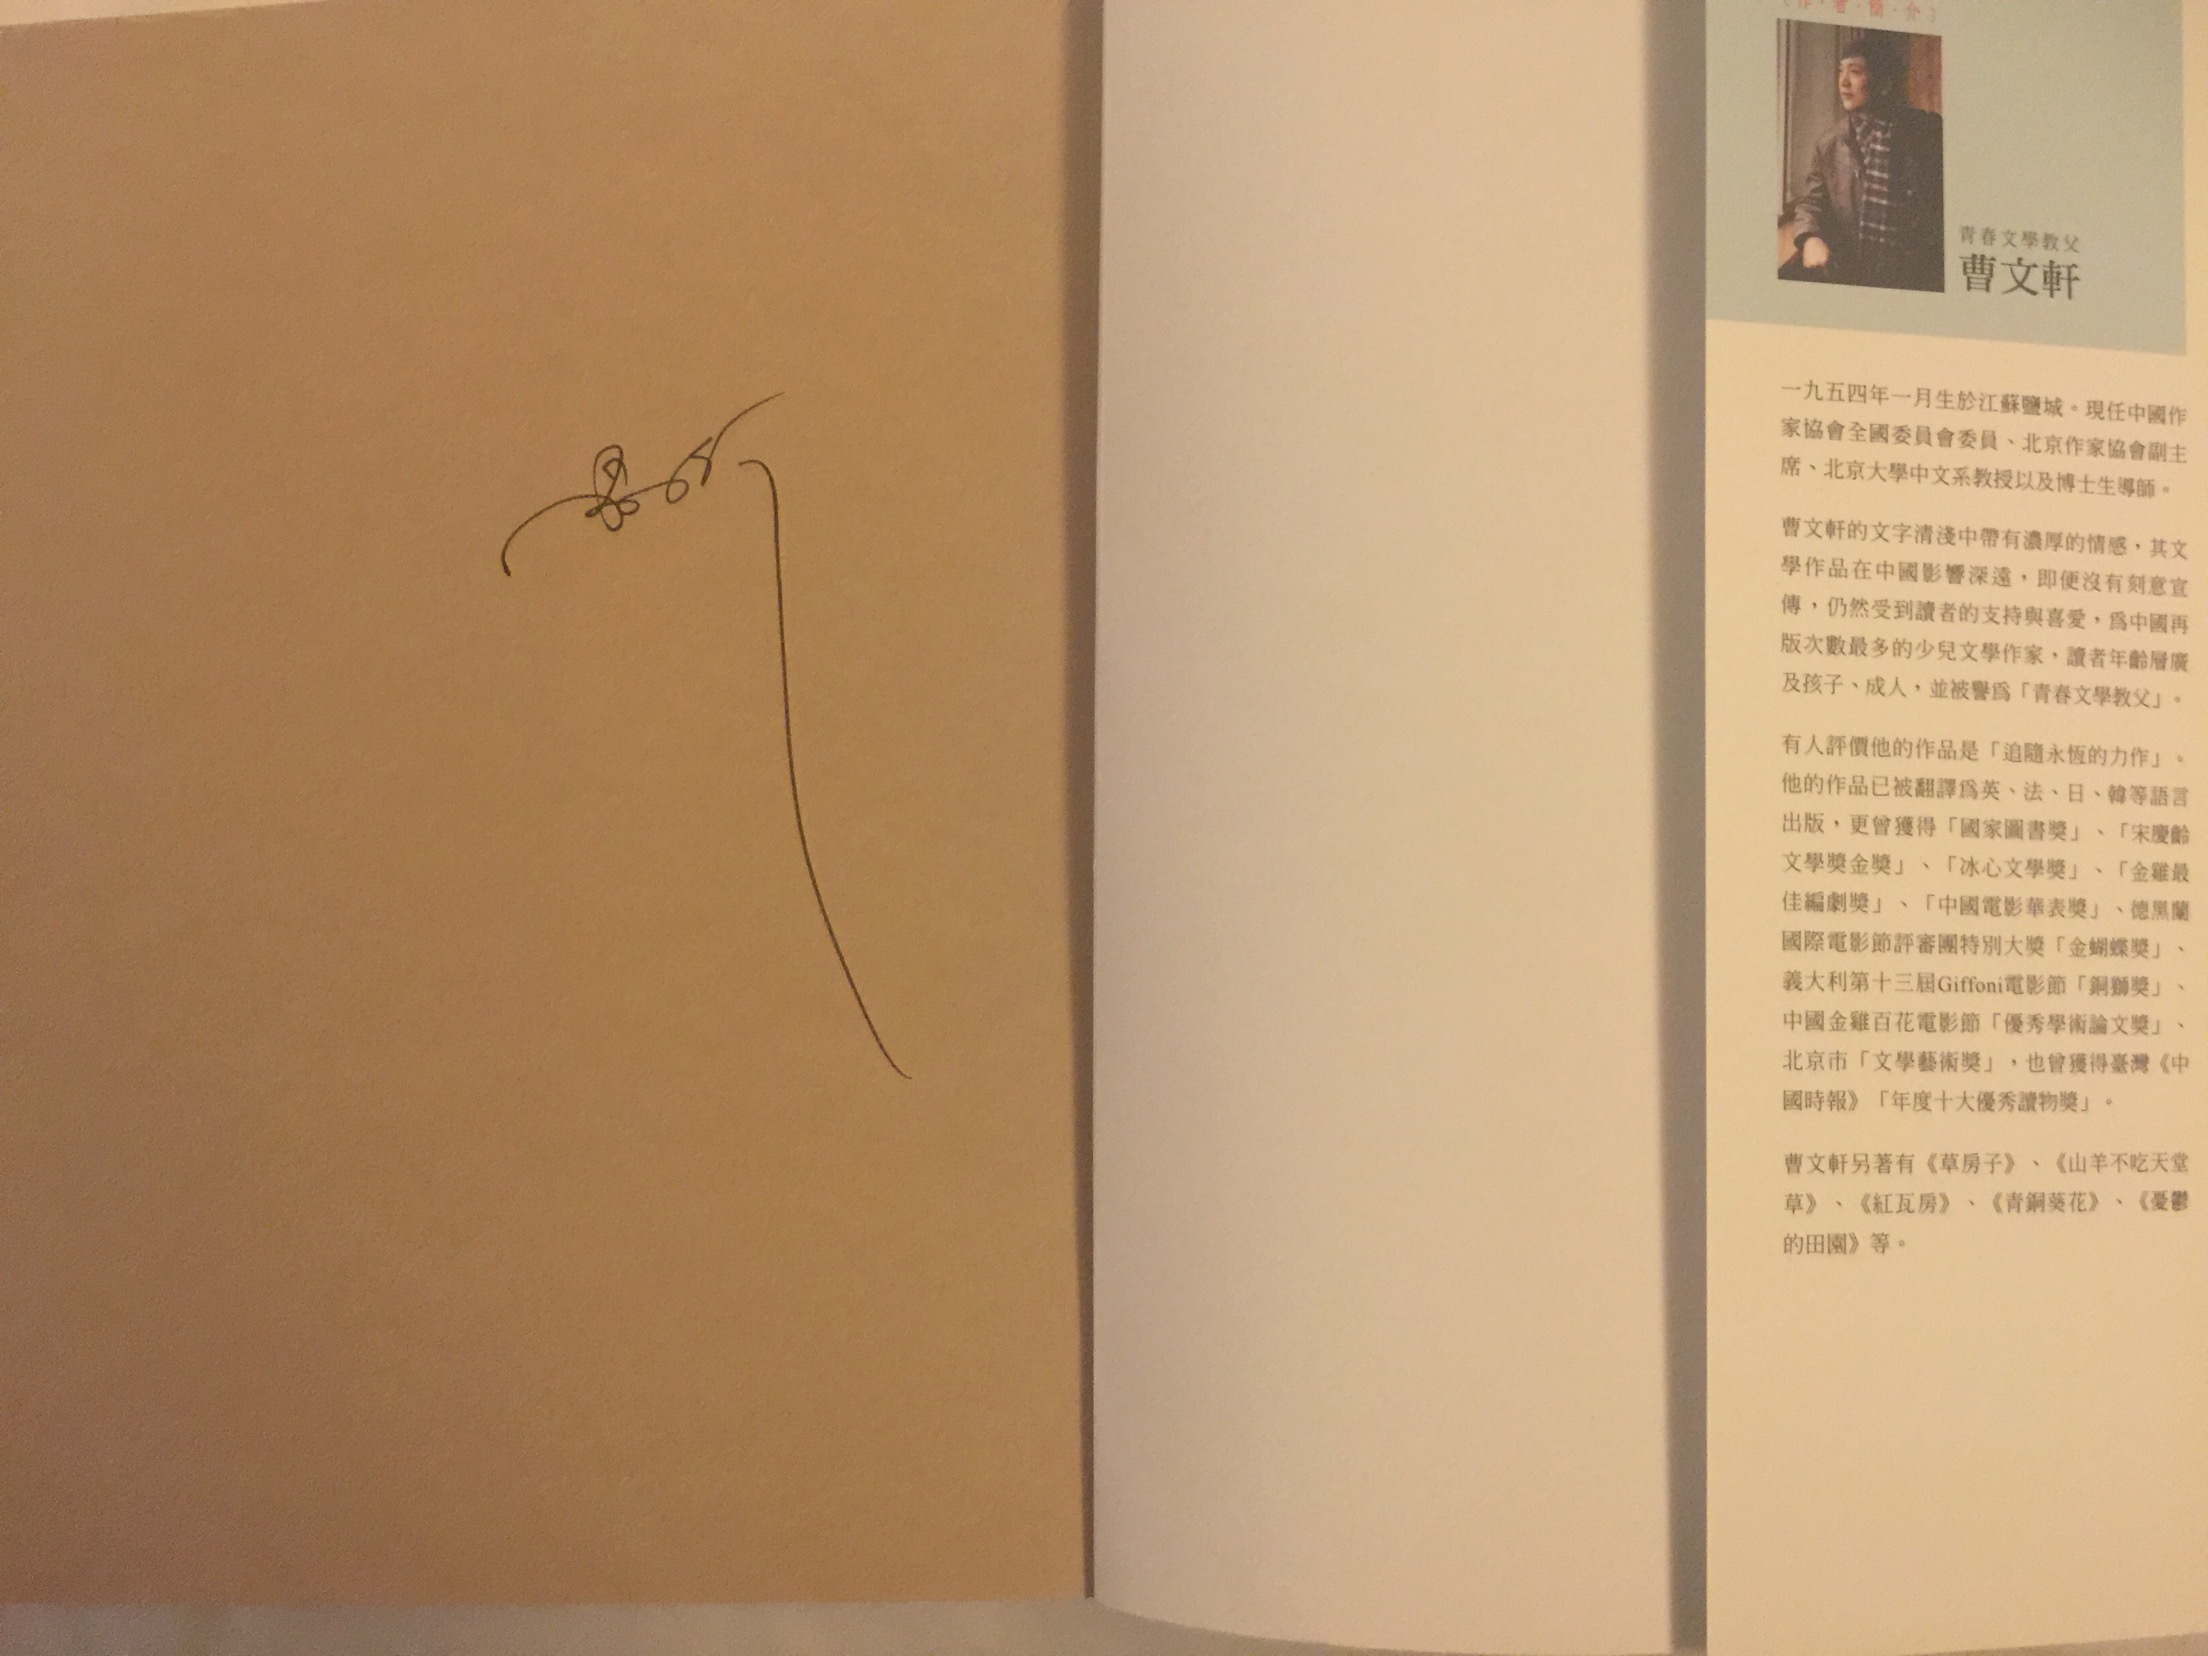 （作・者・簡・介）
青春文學教父
曹文軒
一九五四年一月生於江蘇鹽城。現任中國作
家協會全國委員會委員、北京作家協會副主
席、北京大學中文系教授以及博士生導師。
曹文軒的文字清淺中帶有濃厚的情感，其文
學作品在中國影響深遠，即便沒有刻意宣
傳，仍然受到讀者的支持與喜愛，爲中國再
版次數最多的少兒文學作家，讀者年齡層廣
及孩子、成人，並被譽爲「青春文學教父」。
有人評價他的作品是「追隨永恆的力作」。
他的作品已被翻譯爲英、法、日、韓等語言
出版，更曾獲得「國家圖書獎」、「宋慶齡
文學獎金獎」、「冰心文學獎」、「金雞最
佳編劇獎」、「中國電影華表獎」、德黑蘭
國際電影節評審團特別大獎「金蝴蝶獎」、
義大利第十三屆Giffoni電影節「銅獅獎」、
中國金雞百花電影節「優秀學術論文獎」、
北京市「文學藝術獎」，也曾獲得臺灣《中
國時報》「年度十大優秀讀物獎」。
曹文軒另著有《草房子》、《山羊不吃天堂
草》、《紅瓦房》、《青銅葵花》、《憂鬱
的田園》等。